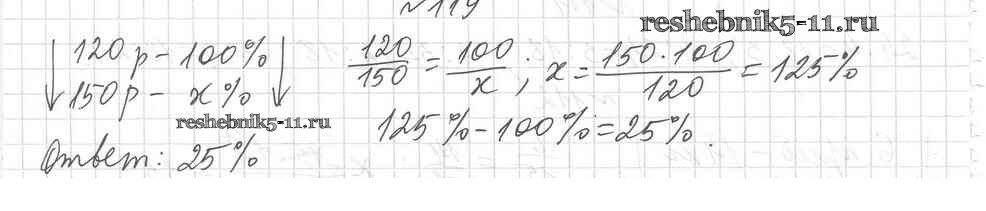 №119
reshebnik5-11.ru
120 р – 100%
150 р – x %
120/150 = 100/x ; x = 150·100/120 = 125%
reshebnik5-11.ru
125% – 100% = 25%.
Ответ: 25%